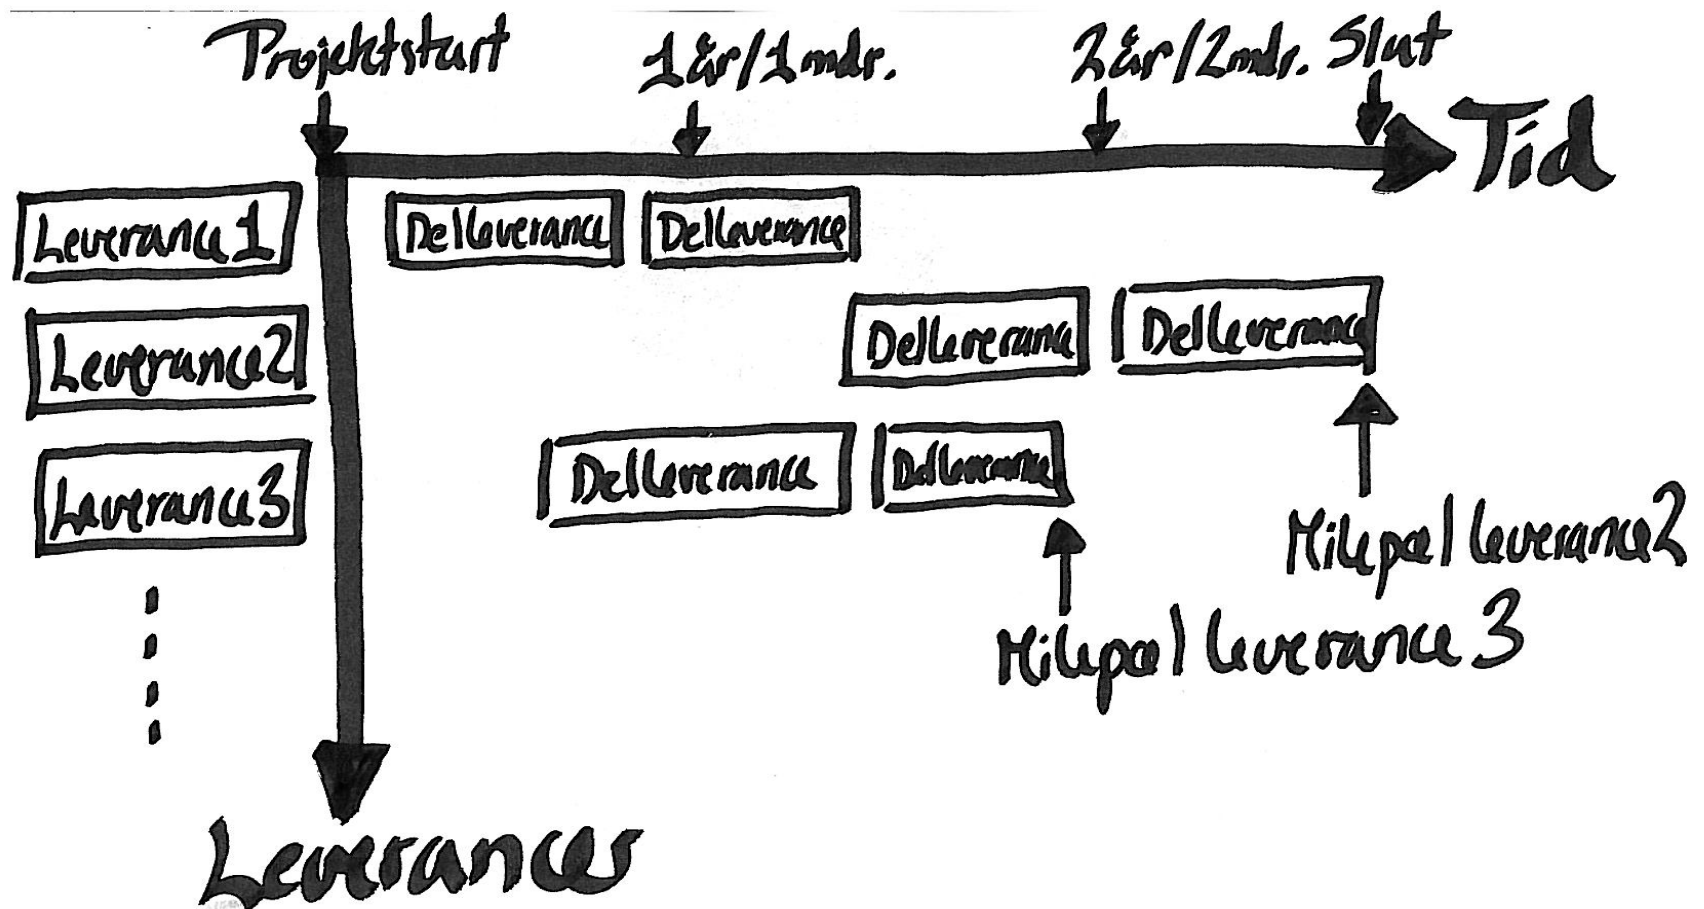 Projektstart
1 år/1 mdr.
2 år/2 mdr.
Slut
Tid
Leverance 1
Delleverance
Delleverance
Leverance 2
Delleverance
Delleverance
Leverance 3
Delleverance
Delleverance
Milepæl leverance 2
Milepæl leverance 3
Leverancer